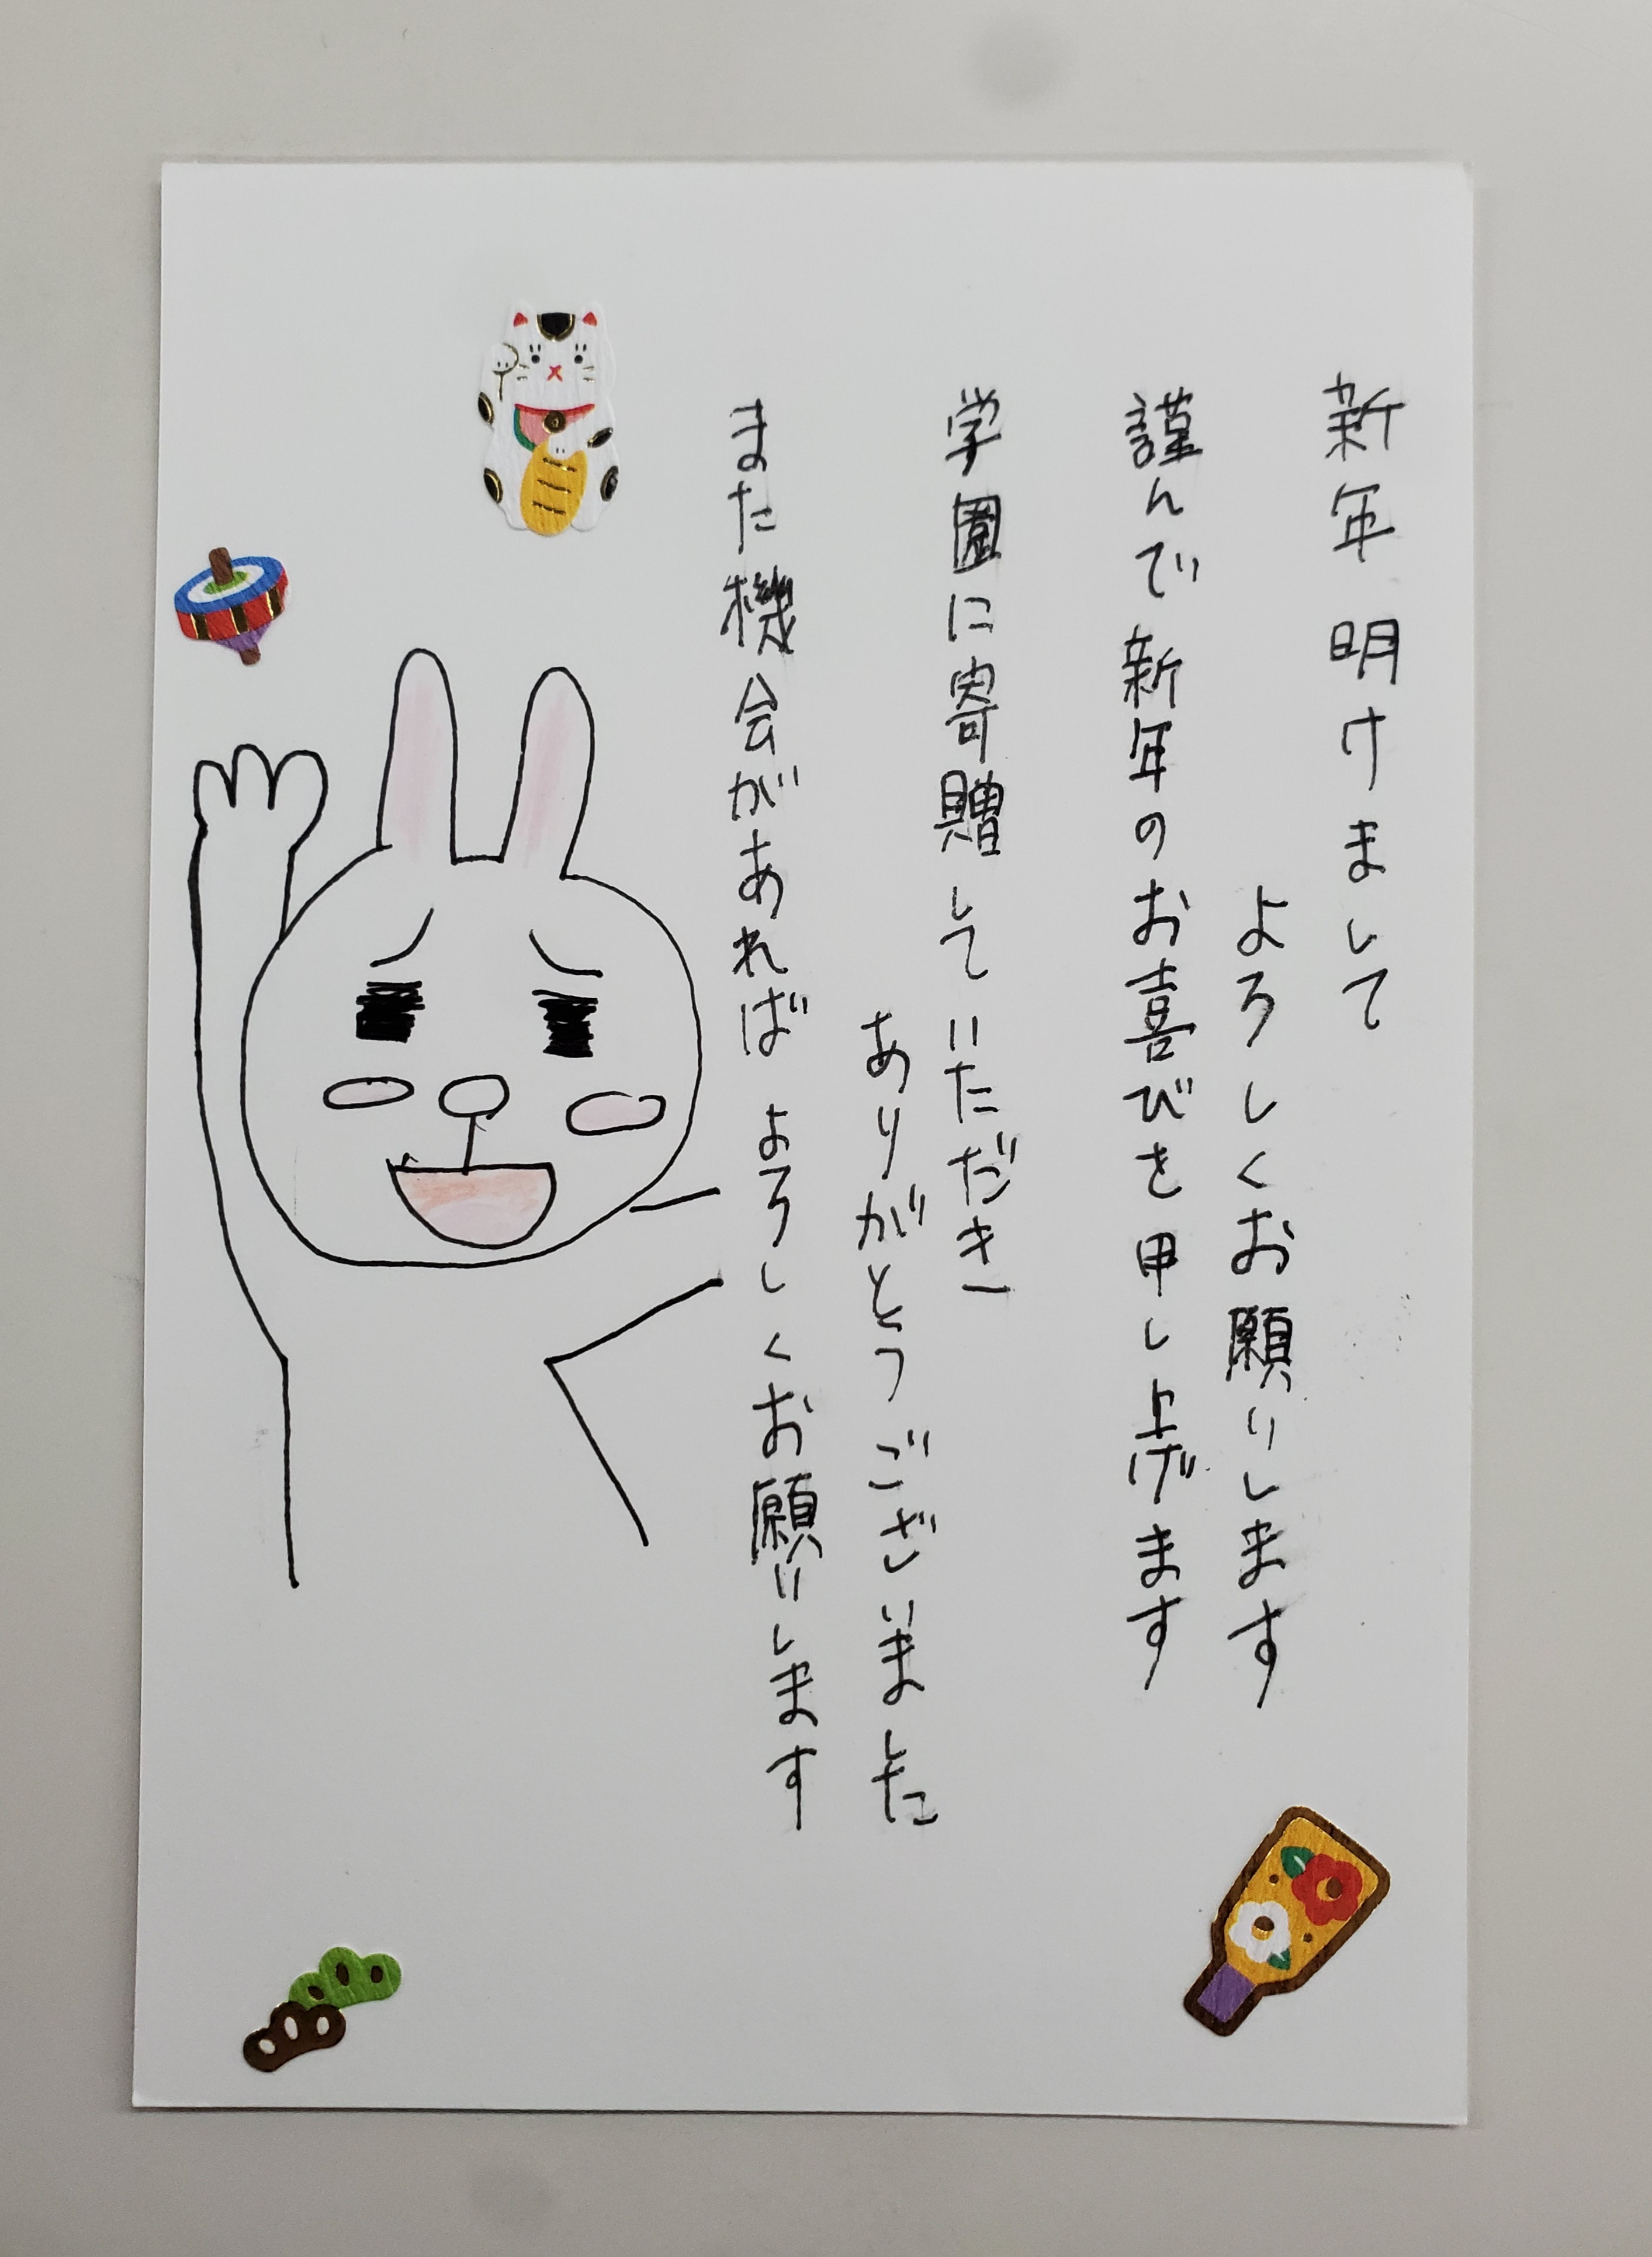 新年明けまして
よろしくお願いします
謹んで新年のお喜びを申し上げます
学園に寄贈していただき
ありがとうございました
また機会があればよろしくお願いします